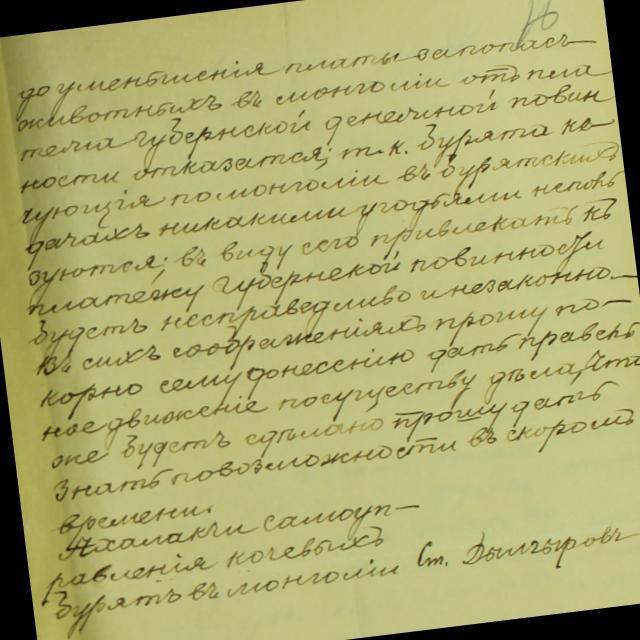 76
до уменьшенія платы за попасъ
животныхъ въ монголіи отъ пла
тежа губернской денежной повин
ности отказатся; т.к. буряты ко-
чующія по монголіи въ бурятскихъ
дачахъ никакими угодьями неполь
зуются; въ виду сего привлекать къ
платежу губернской повинности
будетъ несправедливо и незаконно.—
Въ сихъ соображеніяхъ прошу по-
корно сему донесенію дать правель
ное движеніе посуществу дѣла, что
же будетъ сдѣлано прошу дать
знать повозможности въ скоромъ
времени.
Ахалакчи самоуп-
равленія кочевыхъ
Бурятъ въ монголіи Ст. Дылгыровъ